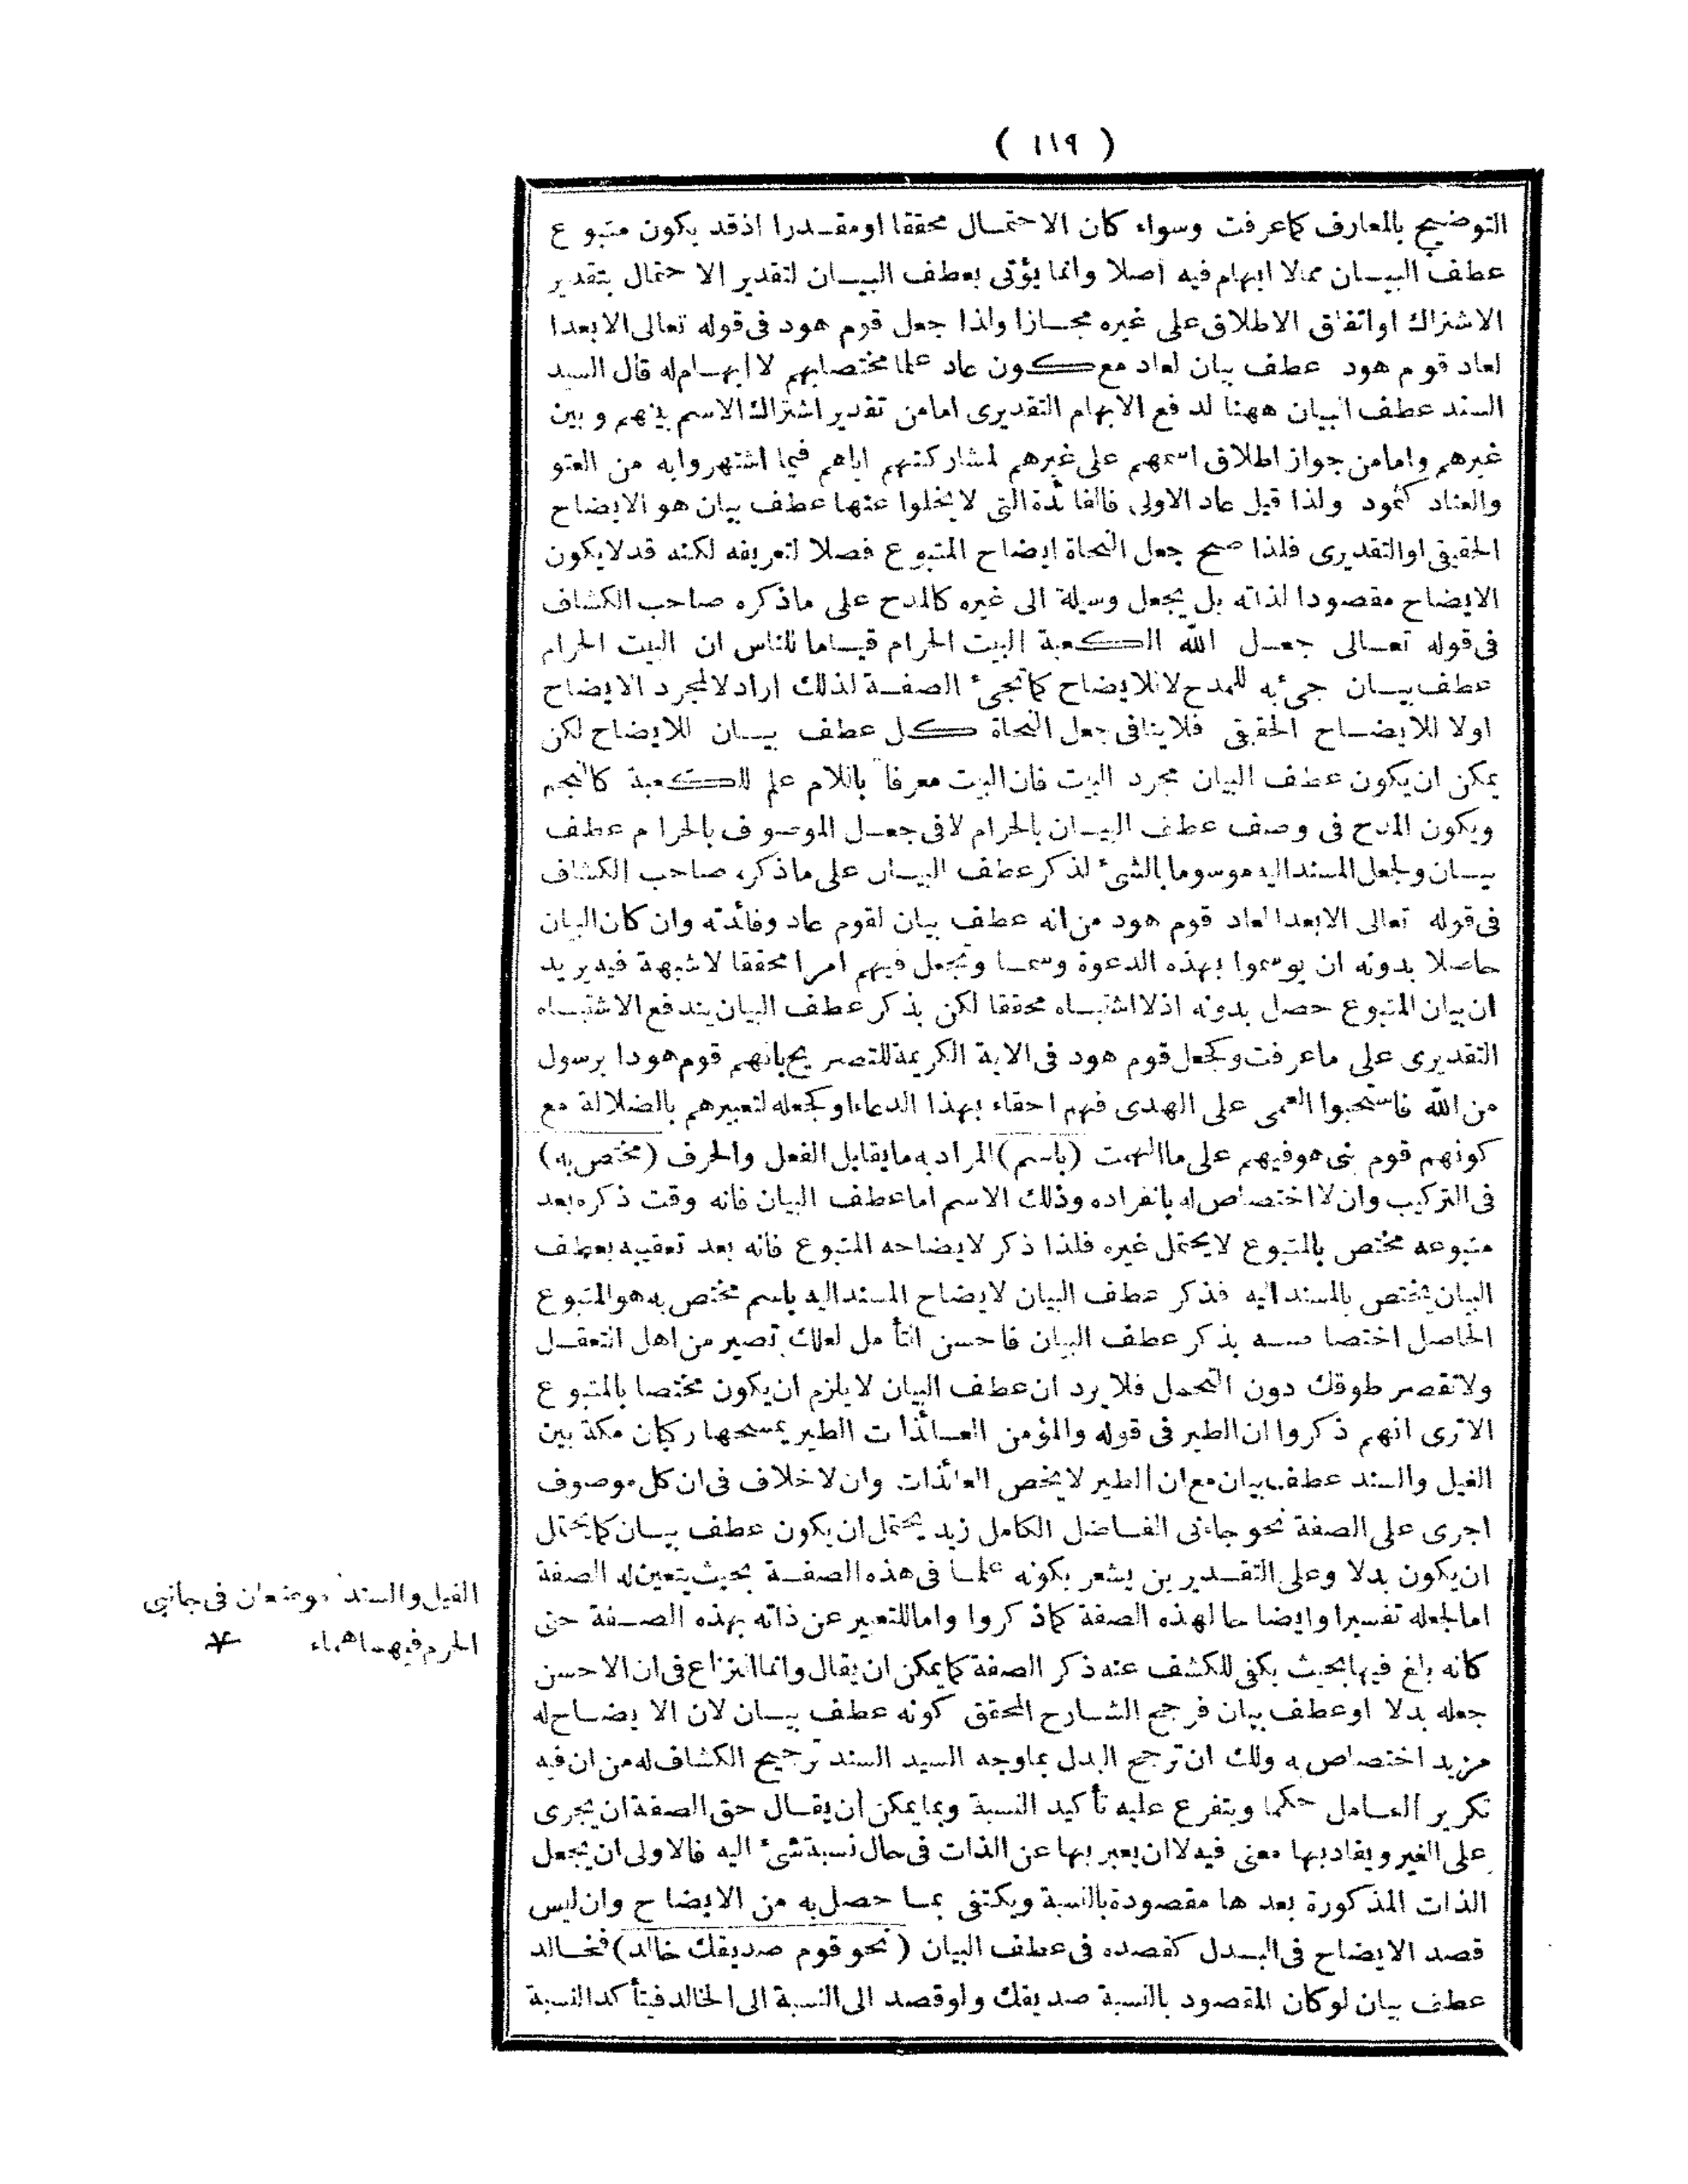 ( ١١٩ )
التوضيح بالمعارف كما عرفت وسواء كان الاحتمال محققا او مقدرا اذ قد يكون متبوع
عطف البيان ممالا ابهام فيه اصلا وانما يؤتى بعطف البيان لتقدير الاحتمال بتقدير
الاشتراك او اتفاق الاطلاق على غيره مجازا ولذا جعل قوم هود فى قوله تعالى الا بعدا
لعاد قوم هود عطف بيان لعاد مع كون عاد علما مختصا بهم لا ابهام له قال السيد
السند عطف البيان ههنا لدفع الابهام التقديرى اما من تقدير اشتراك الاسم بينهم وبين
غيرهم واما من جواز اطلاق اسمهم على غيرهم لمشاركتهم اياهم فيما اشتهروا به من العتو
والعناد كثمود ولذا قيل عاد الاولى فالفائدة التى لا يخلوا عنها عطف بيان هو الايضاح
الحقيقى او التقديرى فلذا صح جعل النحاة ايضاح المتبوع فصلا لتعريفه لكنه قد لا يكون
الايضاح مقصودا لذاته بل يجعل وسيلة الى غيره كالمدح على ما ذكره صاحب الكشاف
فى قوله تعالى جعل الله الكعبة البيت الحرام قياما للناس ان البيت الحرام
عطف بيان جىء به للمدح لا للايضاح كما تجىء الصفة لذلك اراد لا لمجرد الايضاح
اولا للايضاح الحقيقى فلا ينافى جعل النحاة كل عطف بيان للايضاح لكن
يمكن ان يكون عطف البيان مجرد البيت فان البيت معرفا باللام علم للكعبة كالنجم
ويكون المدح فى وصف عطف البيان بالحرام لا فى جعل الموصوف بالحرام عطف
بيان ولجعل المسند اليه موسوما بالشىء لذكر عطف البيان على ما ذكره صاحب الكشاف
فى قوله تعالى الا بعدا لعاد قوم هود من انه عطف بيان لقوم عاد وفائدته وان كان البيان
حاصلا بدونه ان يوسموا بهذه الدعوة وسما وتجعل فيهم امرا محققا لا شبهة فيه يريد
ان بيان المتبوع حصل بدونه اذ لا اشتباه محققا لكن بذكر عطف البيان يندفع الاشتباه
التقديرى على ما عرفت وكجعل قوم هود فى الاية الكريمة للتصريح بانهم قوم هودا برسول
من الله فاستحبوا العمى على الهدى فهم احقاء بهذا الدعاء او كجعله لتعييرهم بالضلالة مع
كونهم قوم نبى هو فيهم على ما الهمت (باسم) المراد به ما يقابل الفعل والحرف (مختص به)
فى التركيب وان لا اختصاص له بانفراده وذلك الاسم اما عطف البيان فانه وقت ذكره بعد
متبوعه مختص بالمتبوع لا يحتمل غيره فلذا ذكر لايضاحه المتبوع فانه بعد تعقيبه بعطف
البيان يختص بالمسند اليه فذكر عطف البيان لايضاح المسند اليه باسم مختص به هو المتبوع
الحاصل اختصاصه بذكر عطف البيان فاحسن التأمل لعلك تصير من اهل التعقل
ولا تقصر طوقك دون التحمل فلا يرد ان عطف البيان لا يلزم ان يكون مختصا بالمتبوع
الا ترى انهم ذكروا ان الطير فى قوله والمؤمن العائذات الطير يمسحها ركبان مكة بين
الغيل والسند عطف بيان مع ان الطير لا يخص العائذات وان لا خلاف فى ان كل موصوف
اجرى على الصفة نحو جاءنى الفاضل الكامل زيد يحتمل ان يكون عطف بيان كما يحتمل
ان يكون بدلا وعلى التقديرين يشعر بكونه علما فى هذه الصفة بحيث يتعين له الصفة
اما لجعله تفسيرا وايضاحا لهذه الصفة كما ذكروا واما للتعبير عن ذاته بهذه الصفة حتى
كانه بلغ فيها بحيث يكفى للكشف عنه ذكر الصفة كما يمكن ان يقال وانما النزاع فى ان الاحسن
جعله بدلا او عطف بيان فرجح الشارح المحقق كونه عطف بيان لان الايضاح له
مزيد اختصاص به ولك ان ترجح البدل بما وجه السيد السند ترجيح الكشاف له من ان فيه
تكرير العامل حكما ويتفرع عليه تأكيد النسبة وبما يمكن ان يقال حق الصفة ان يجرى
على الغير ويفاد بها معنى فيه لا ان يعبر بها عن الذات فى حال نسبة شىء اليه فالاولى ان يجعل
الذات المذكورة بعدها مقصودة بالنسبة ويكتفى بما حصل به من الايضاح وان ليس
قصد الايضاح فى البدل كقصده فى عطف البيان (نحو قوم صديقك خالد) فخالد
عطف بيان لو كان المقصود بالنسبة صديقك ولو قصد الى النسبة الى الخالد فيتأكد النسبة
الغيل والسند موضعان فى جانبى
الحرم فيهما ماء